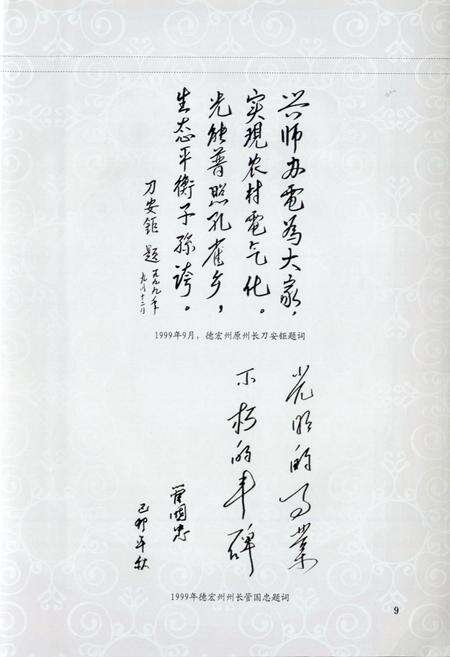 兴师办電為大家，
实現农村電气化。
光能普照孔雀乡，
生态平衡子孫誇。
刀安鉅 题 一九九九年
九月十二日
1999年9月，德宏州原州长刀安钜题词
光明的事業
不朽的丰碑
管国忠
己卯年秋
1999年德宏州州长管国忠题词
9